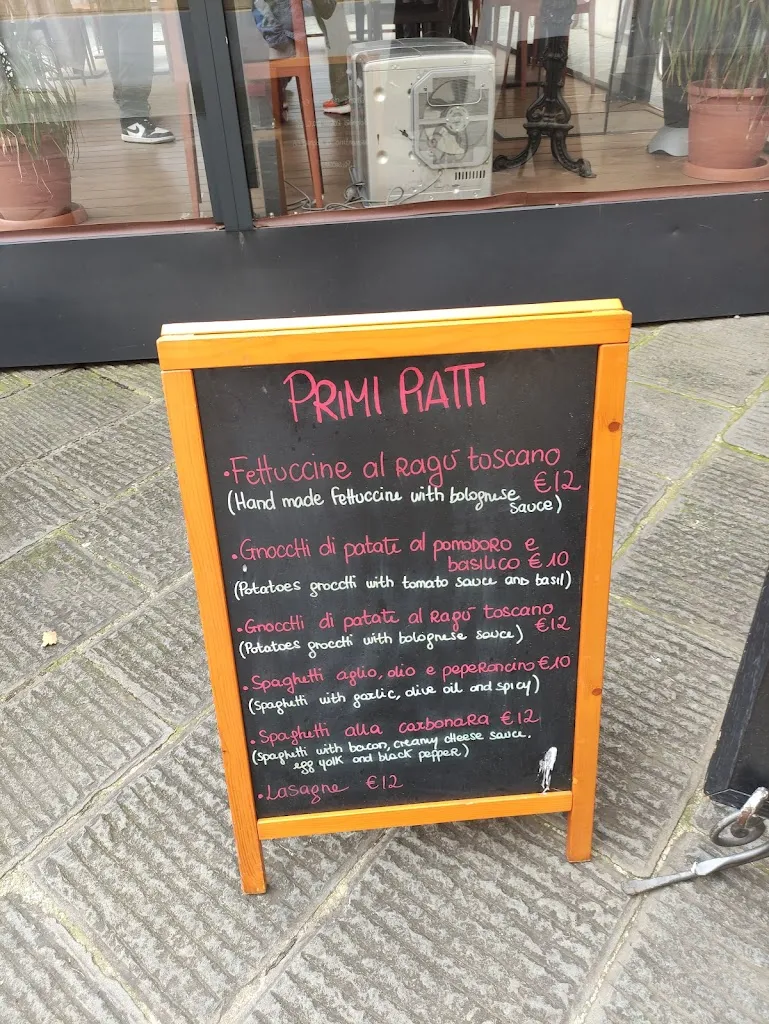 PRIMI PIATTI
• Fettuccine al Ragú toscano
€12
(Hand made fettuccine with bolognese
sauce)
• Gnocchi di patate al pomodoro e
basilico €10
(Potatoes gnocchi with tomato sauce and basil)
• Gnocchi di patate al Ragú toscano
€12
(Potatoes gnocchi with bolognese sauce)
• Spaghetti aglio, olio e peperoncino €10
(spaghetti with garlic, olive oil and spicy)
• Spaghetti alla carbonara €12
(spaghetti with bacon, creamy cheese sauce,
egg yolk and black pepper)
• Lasagne €12